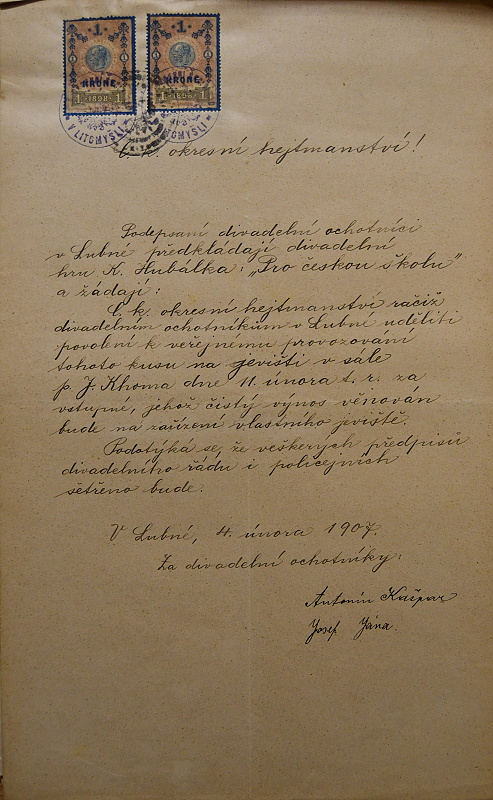 1 1
KRONE KRONE
1 1898 1 1 1898 1
V LITOMYŠLI LITOMYŠLI
C. k. okresní hejtmanství!
Podepsaní divadelní ochotníci
v Lubné předkládají divadelní
hru K. Hubálka: „Pro českou školu"
a žádají:
C. k. okresní hejtmanství račiž
divadelním ochotníkům v Lubné uděliti
povolení k veřejnému provozování
tohoto kusu na jevišti v sále
p. J. Khoma dne 11. února t. r. za
vstupné, jehož čistý výnos věnován
bude na zařízení vlastního jeviště.
Podotýká se, že veškerých předpisů
divadelního řádu i policejních
šetřeno bude.
V Lubné, 4. února 1907.
Za divadelní ochotníky:
Antonín Kašpar
Josef Jána.